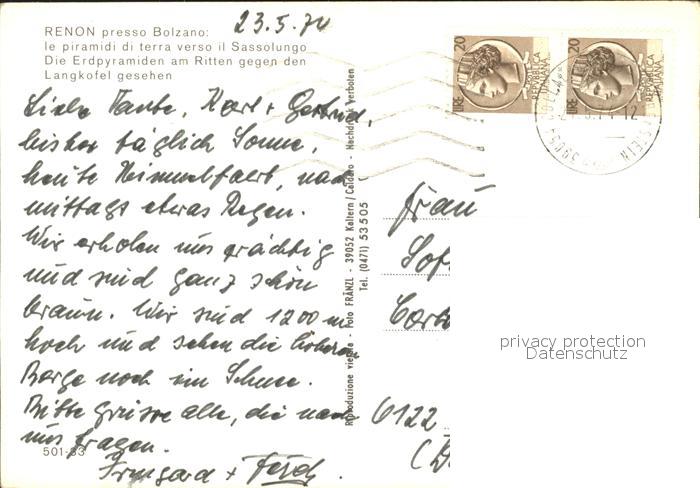 23.5.74
RENON presso Bolzano:
le piramidi di terra verso il Sassolungo
Die Erdpyramiden am Ritten gegen den
Langkofel gesehen
Liebe Tante, Karl + Gertrud,
bisher täglich Sonne,
heute Himmelfahrt, nach
mittags etwas Regen.
Wir erholen uns prächtig
und sind ganz schön
braun. Wir sind 1200 m
hoch und sehen die höheren
Berge noch im Schnee.
Bitte grüsse alle, die nach
uns fragen.
Irmgard +
501-33
Riproduzione vietata - Foto FRÄNZL - 39052 Kaltern / Caldaro - Nachdruck verboten
Tel. (0471) 53505
20 LIRE REPVBBLICA ITALIANA
20 LIRE REPVBBLICA ITALIANA
Frau
6122
privacy protection
Datenschutz